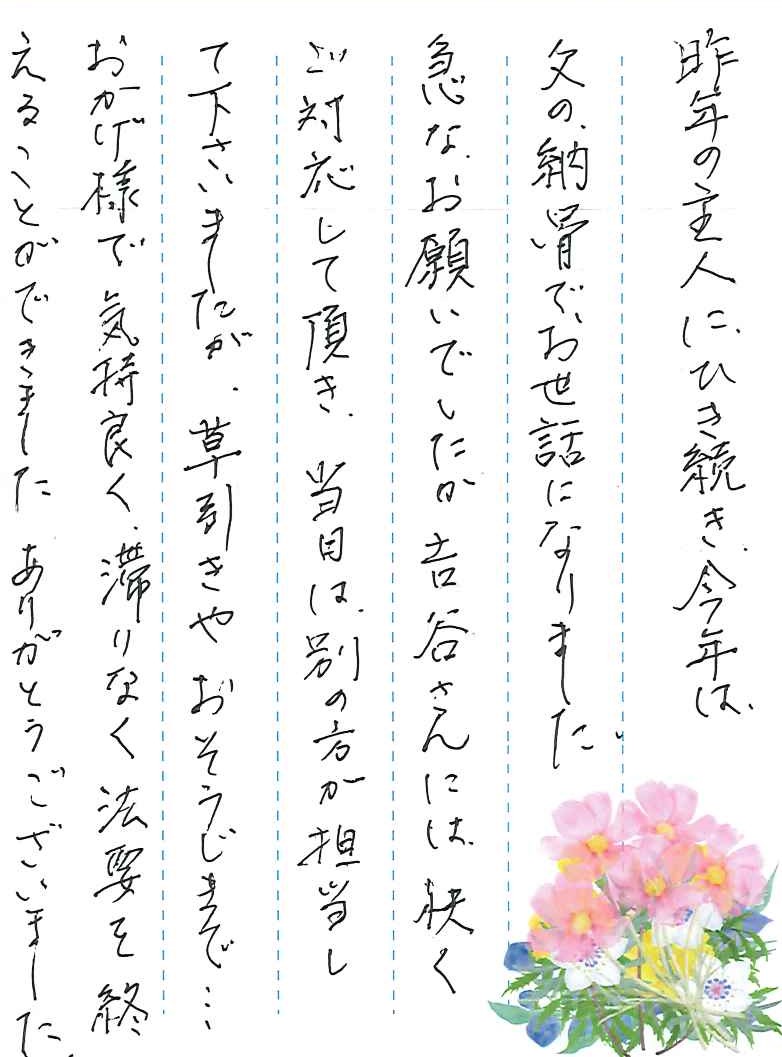 昨年の主人に、ひき続き、今年は、
父の、納骨で、お世話になりました。
急な、お願いでしたが 吉谷さんには、快く
ご対応して頂き、当日は、別の方が担当し
て下さいましたが、草引きや おそうじまで…
おかげ様で 気持良く、滞りなく 法要を 終
えることができました ありがとうございました。